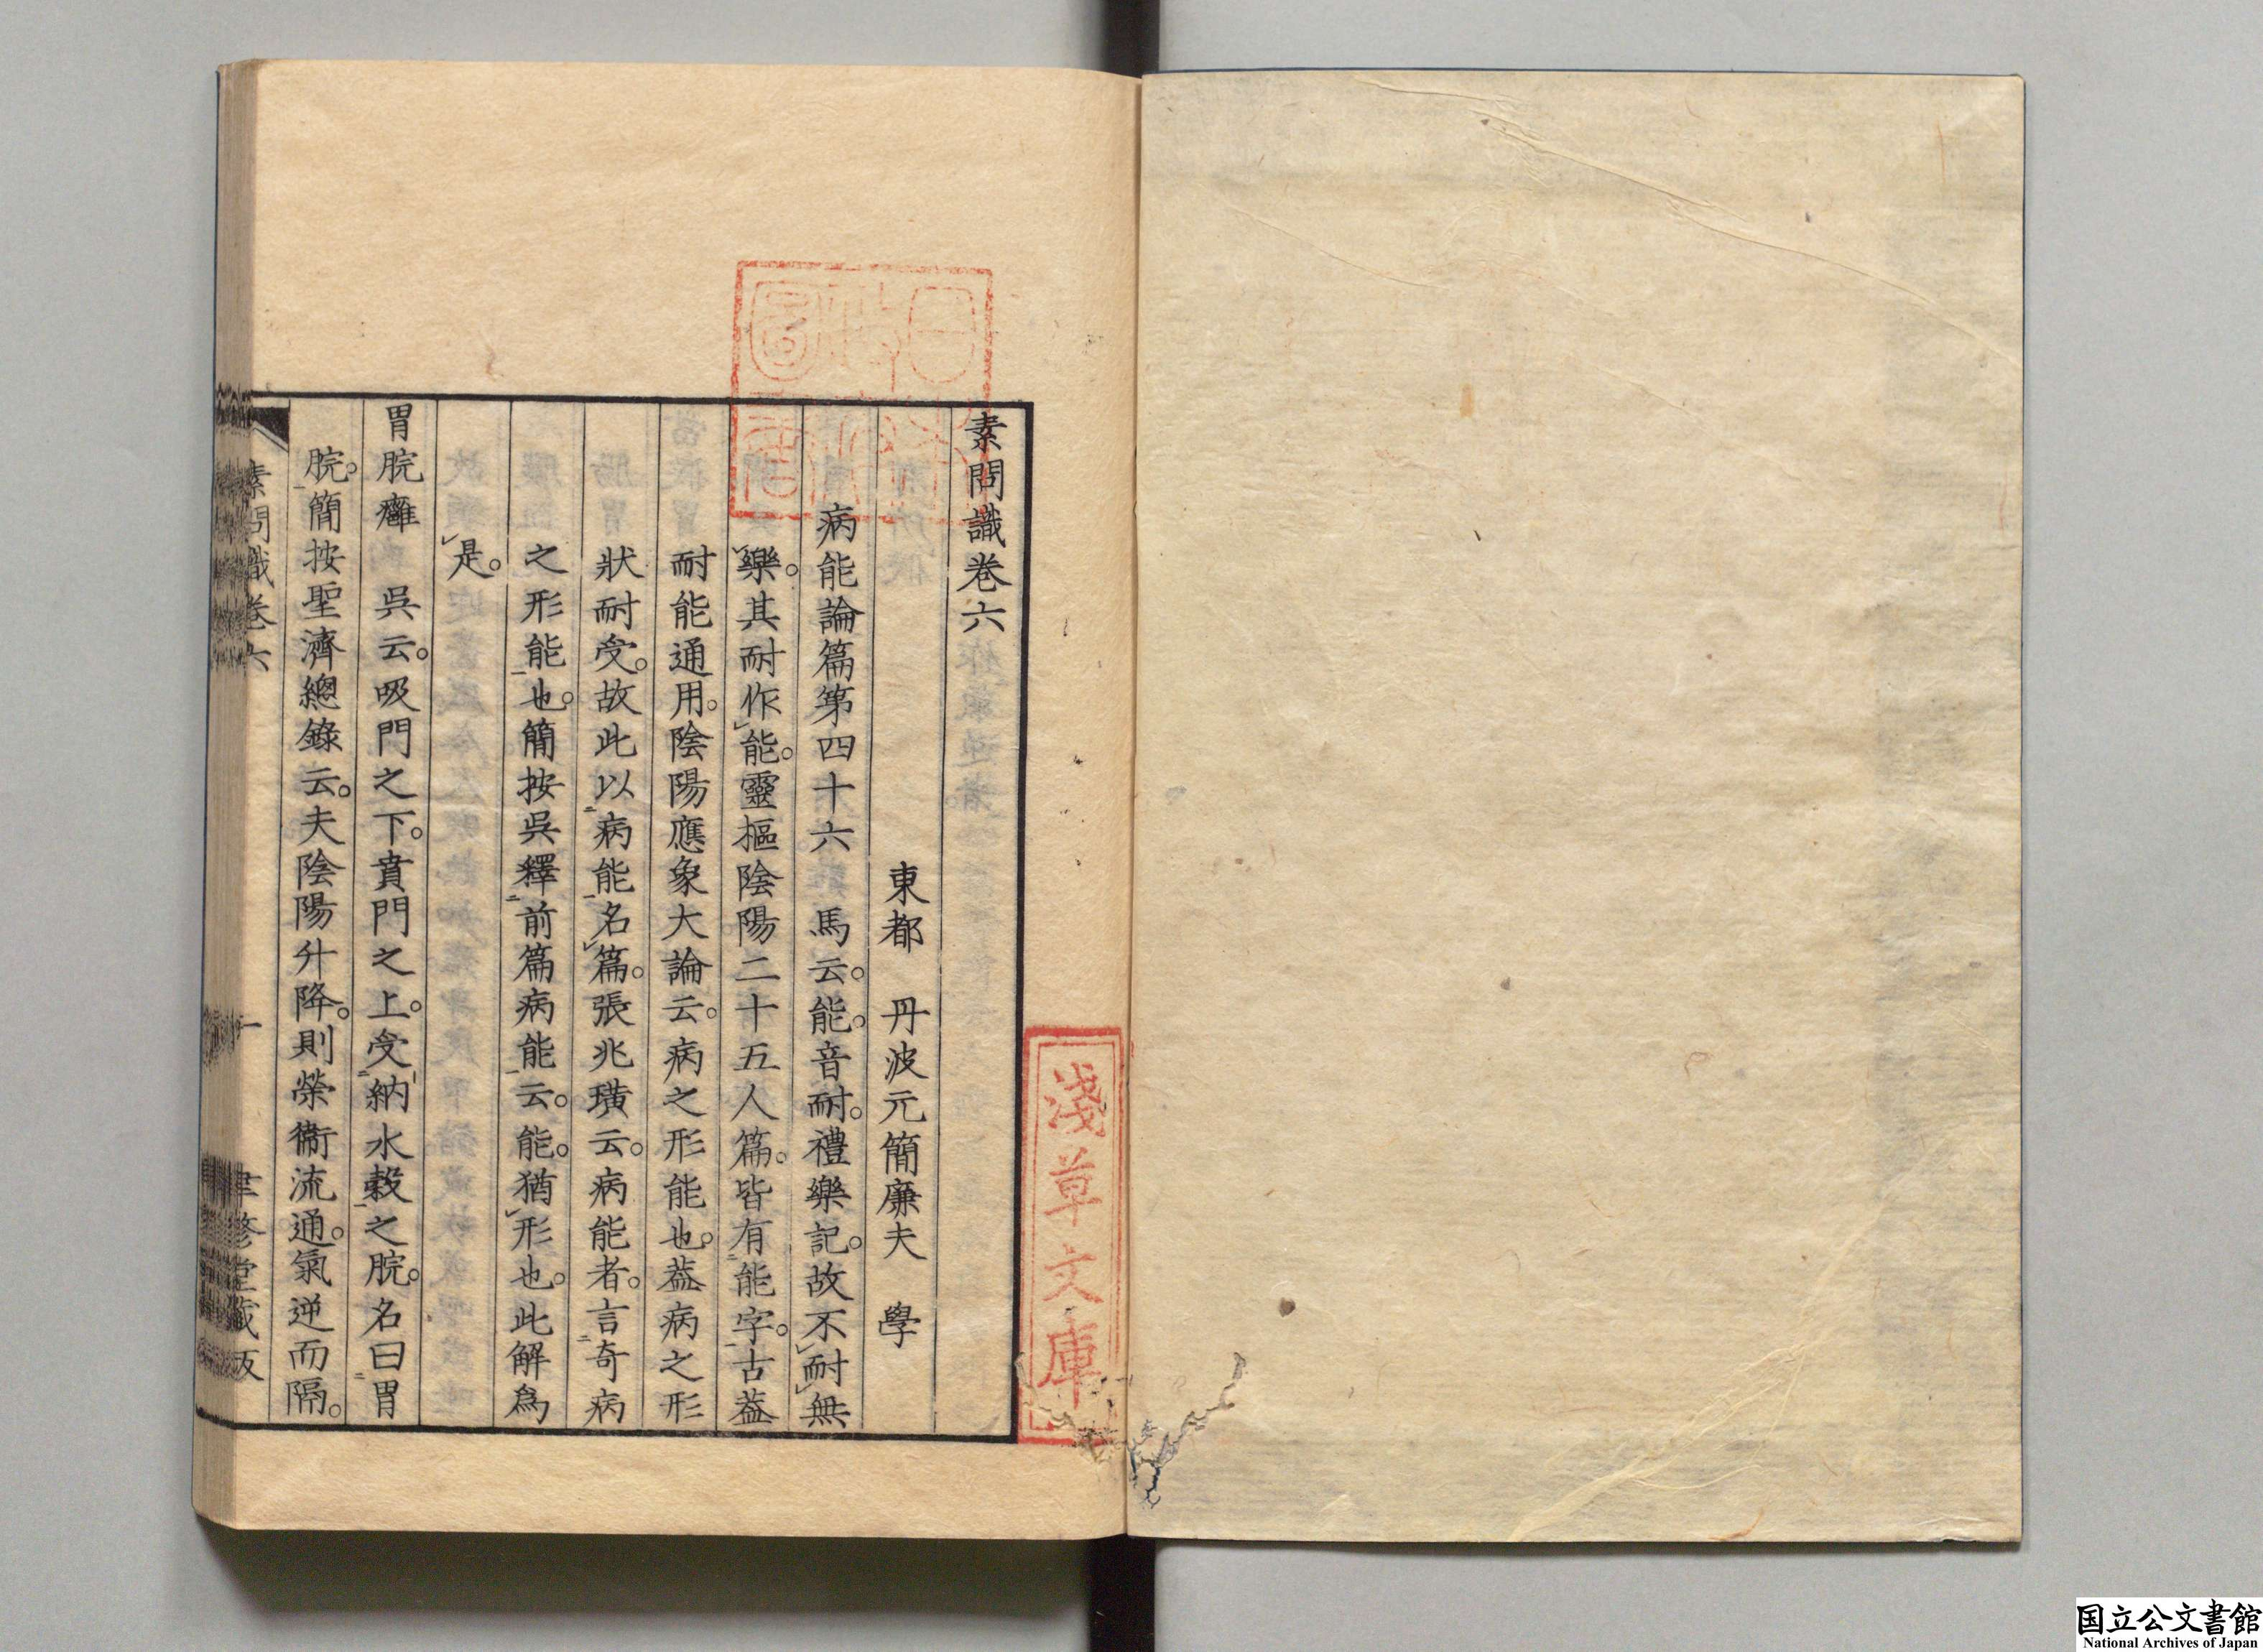 素問識卷六
東都　丹波元簡廉夫　學
病能論篇第四十六　馬云。能。音耐。禮樂記。故不耐無
樂。其耐作能。靈樞陰陽二十五人篇。皆有能字。古蓋
耐能通用。陰陽應象大論云。病之形能也。蓋病之形
狀耐受。故此以病能名篇。張兆璜云。病能者。言奇病
之形能也。簡按吳釋前篇病能云。能。猶形也。此解爲
是。
胃脘癰　吳云。吸門之下。賁門之上。受納水穀之脘。名曰胃
脘。簡按聖濟總錄云。夫陰陽升降。則榮衞流通。氣逆而隔。
素問識卷六
一
聿修堂藏版
淺草文庫
国立公文書館
National Archives of Japan